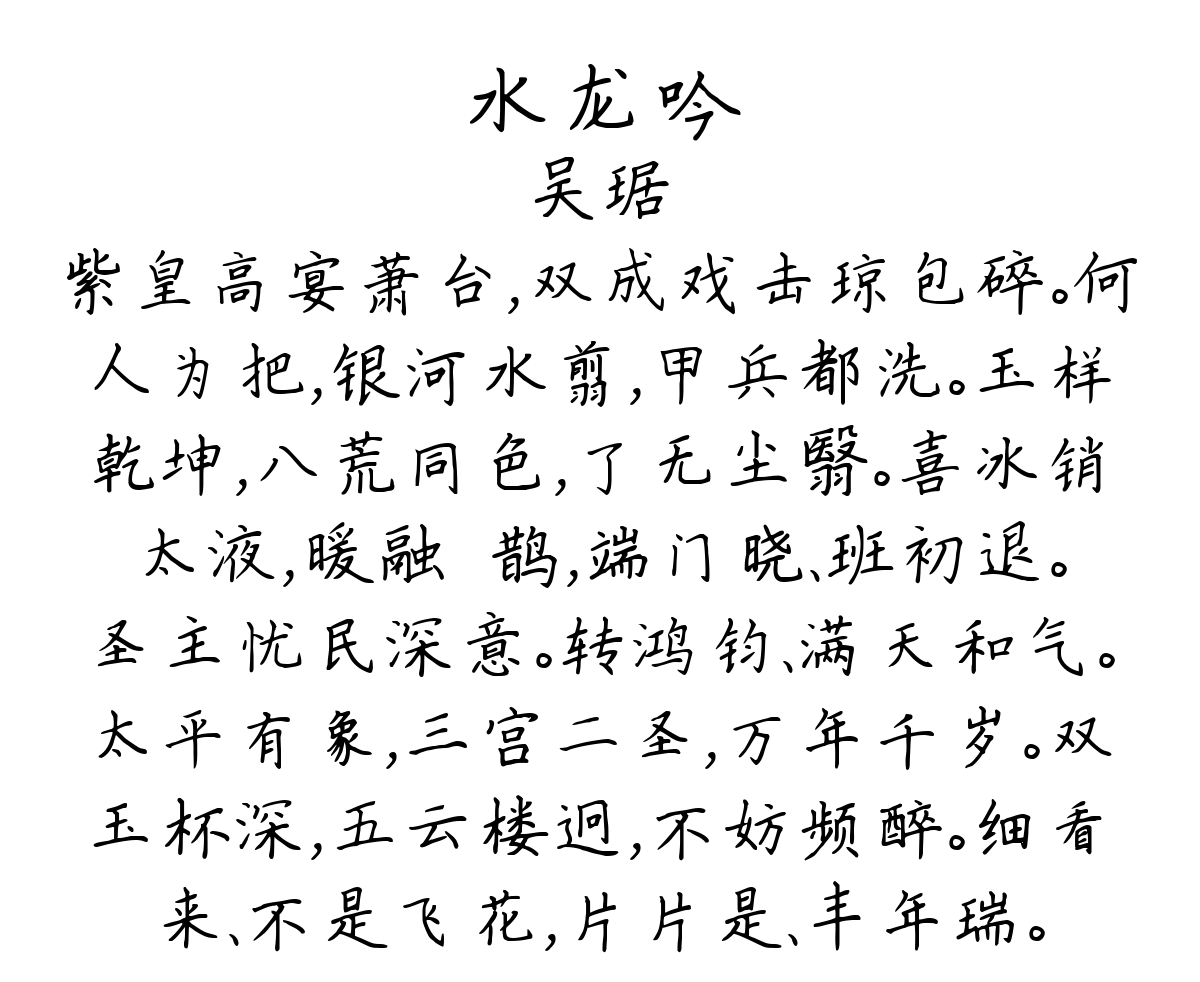 水龙吟
吴琚
紫皇高宴萧台,双成戏击琼包碎。何
人为把,银河水翦,甲兵都洗。玉样
乾坤,八荒同色,了无尘翳。喜冰销
太液,暖融 鹊,端门晓、班初退。
圣主忧民深意。转鸿钧、满天和气。
太平有象,三宫二圣,万年千岁。双
玉杯深,五云楼迥,不妨频醉。细看
来、不是飞花,片片是、丰年瑞。